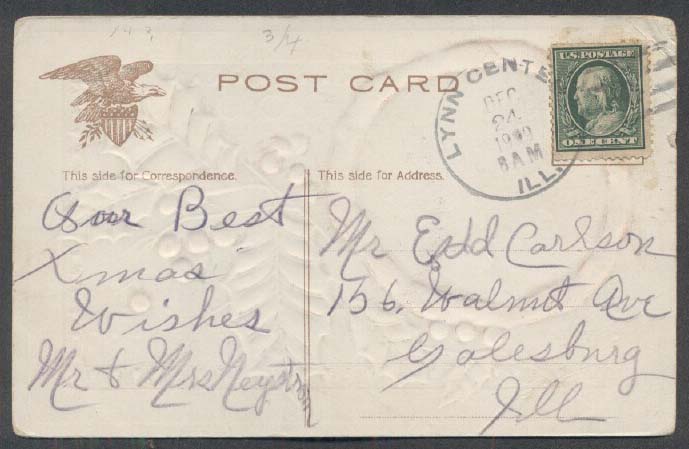 POST CARD
LYNN CENTER
ILL.
DEC
24
8 AM
U.S. POSTAGE
ONE CENT
This side for Correspondence.
This side for Address.
Our Best
Xmas
Wishes
Mr & Mrs Neystrom
Mr Edd Carlson
156. Walnut Ave
Galesburg
Ill